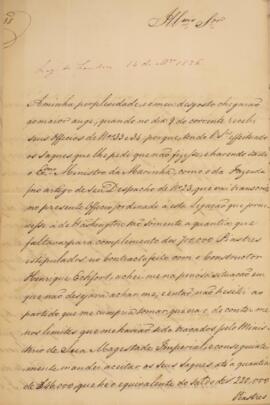 Illmo Snr
Leg. de Londres 14 de Mço 1826
A minha perplexidade, e meu desgosto chegarão
ao maior auge, quando no dia 9 do corrente recebi
seus Officios de Nos 33 e 34, porque tendo V. Sa effeituado
os Saques que lhe pedi que não fizesse, e havendo
o Exmo Ministro da Marinha, como o da Fazenda
no artigo de seu Despacho de No 23, que vai transcrito
no presente Officio, ordenado a esta Legação que
a de Washington tão sómente a quantia que
faltasse para complemento dos Piastres
estipulados no contracto feito com o constructor
Henrique Eckfort, achei-me na precisa situação em
que não desejara achar-me, e então não hesitei ao
partido que me cumpria tomar, que era o de conter-me
nos limites que me havião sido traçados pelo Minis-
terio de Sua Magestade Imperial, e conseguinte-
mente mandei aceitar os seus Saques até a quantia
de que he o equivalente do saldo de 220.000
Piastres